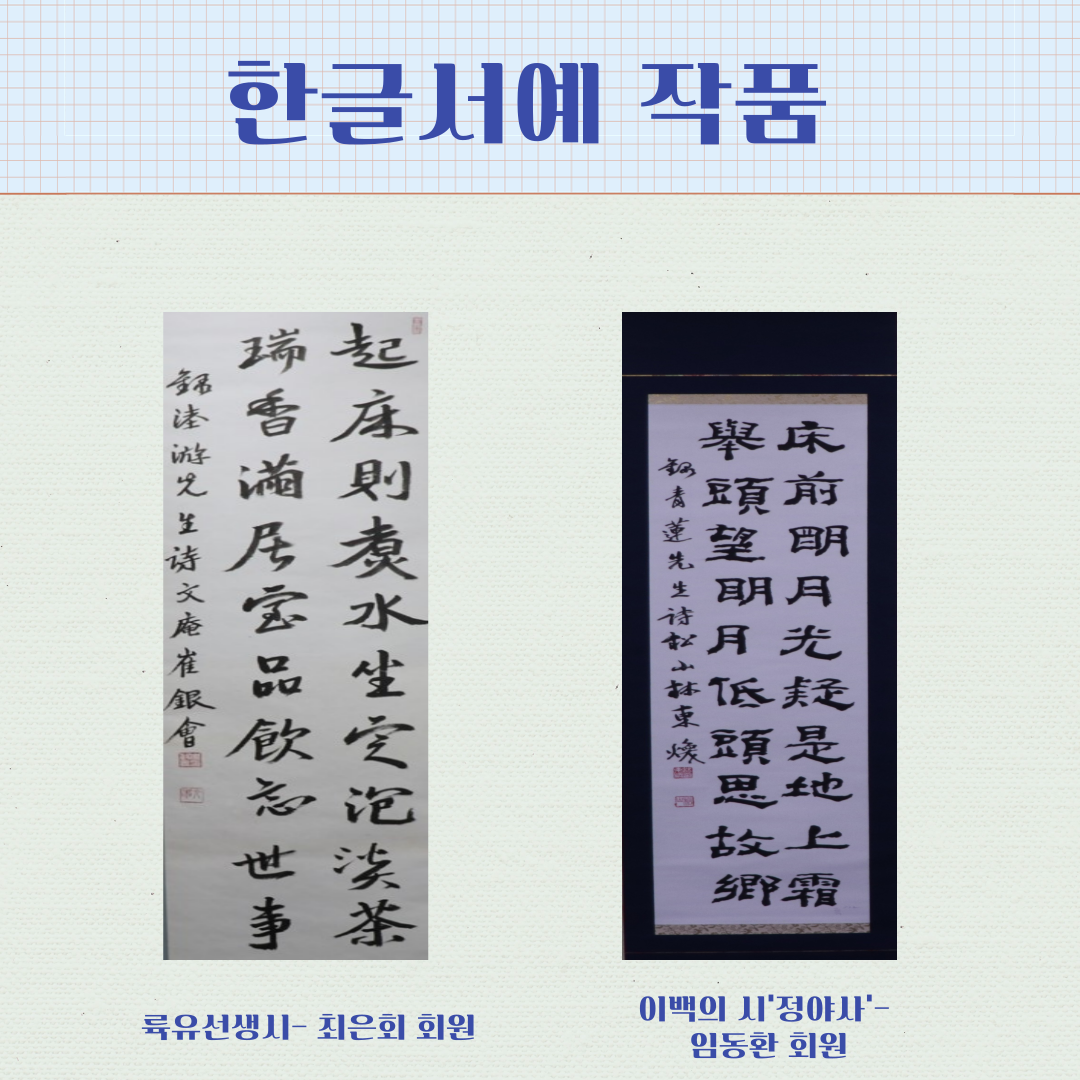 한글서예 작품
起床則煮水坐定泡淡茶
瑞香滿居室品飲忘世事
錄陸游先生詩文庵崔銀會
床前明月光疑是地上霜
舉頭望明月低頭思故鄉
錄青蓮先生詩松山林東煥
륙유선생시- 최은회 회원
이백의 시'정야사'-
임동환 회원